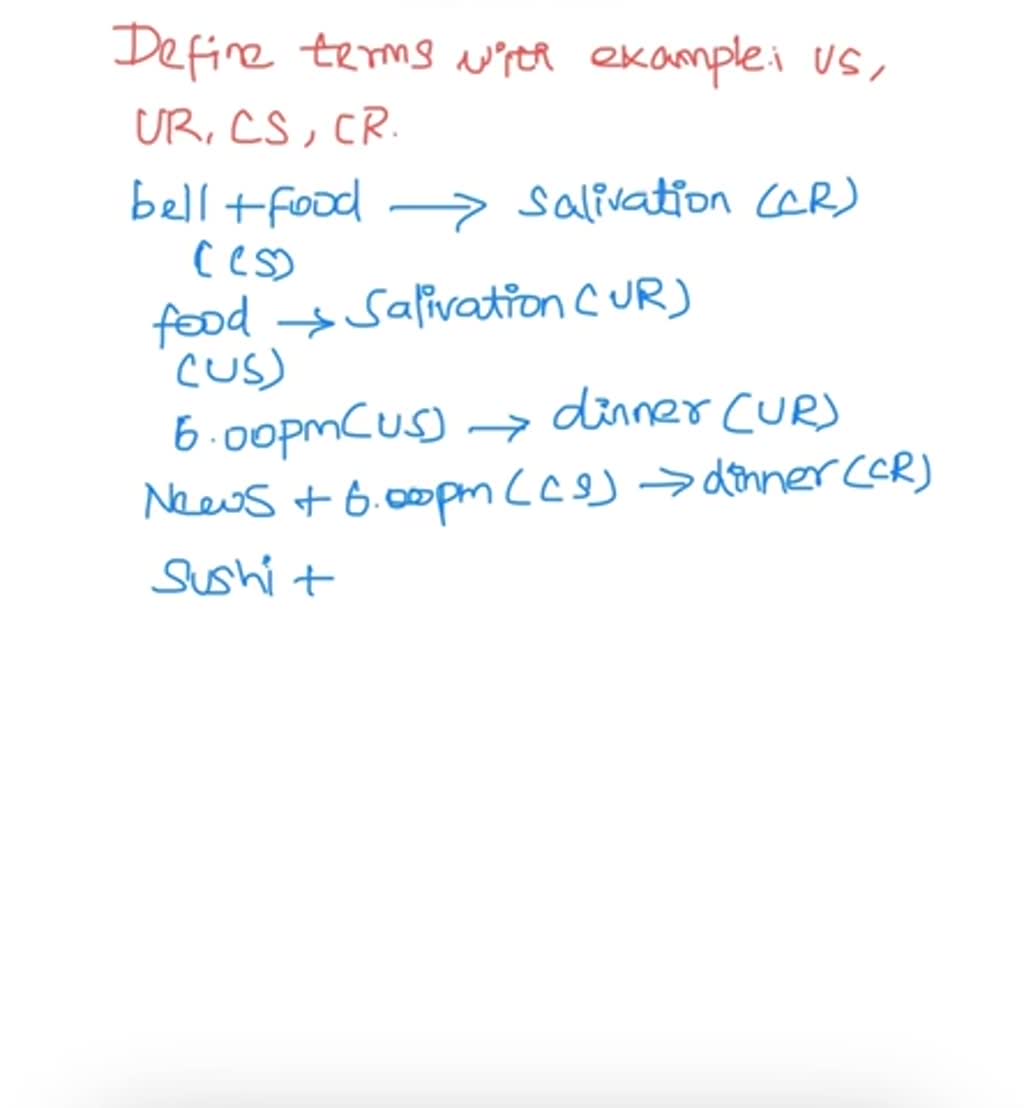 Define terms with example: US,
UR, CS, CR.
bell + food → Salivation (CR)
(CS)
food → Salivation (UR)
(US)
6.00pm (US) → dinner (UR)
News + 6.00pm (CS) → dinner (CR)
Sushi +